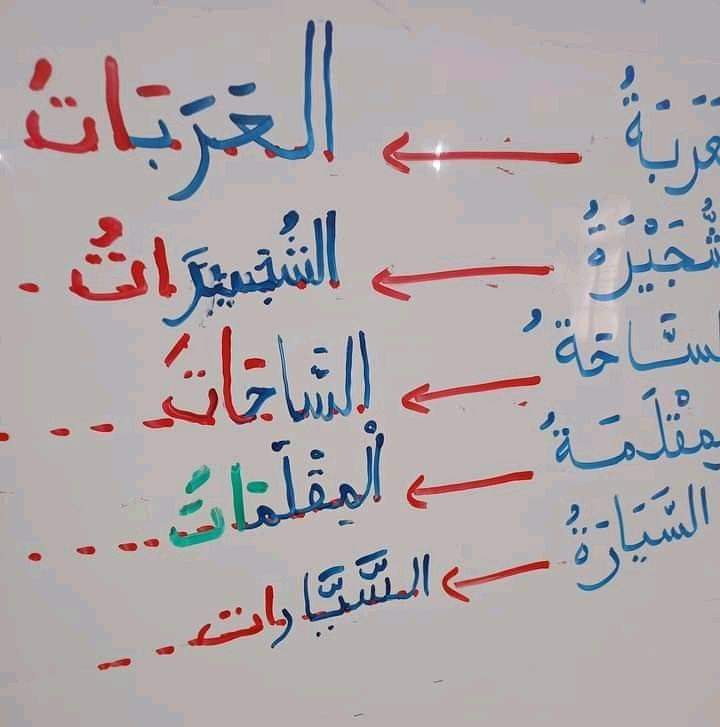 عَرَبَةُ ← العَرَبَاتُ
شُّجَيْرَةُ ← الشُجَيْرَاتُ .
لسَّاحَةُ ← السَّاحَاتُ ....
مِقْلَمَةُ ← الْمِقْلَمَاتُ ....
السَّيَارَةُ ← السَّيَّارات ...